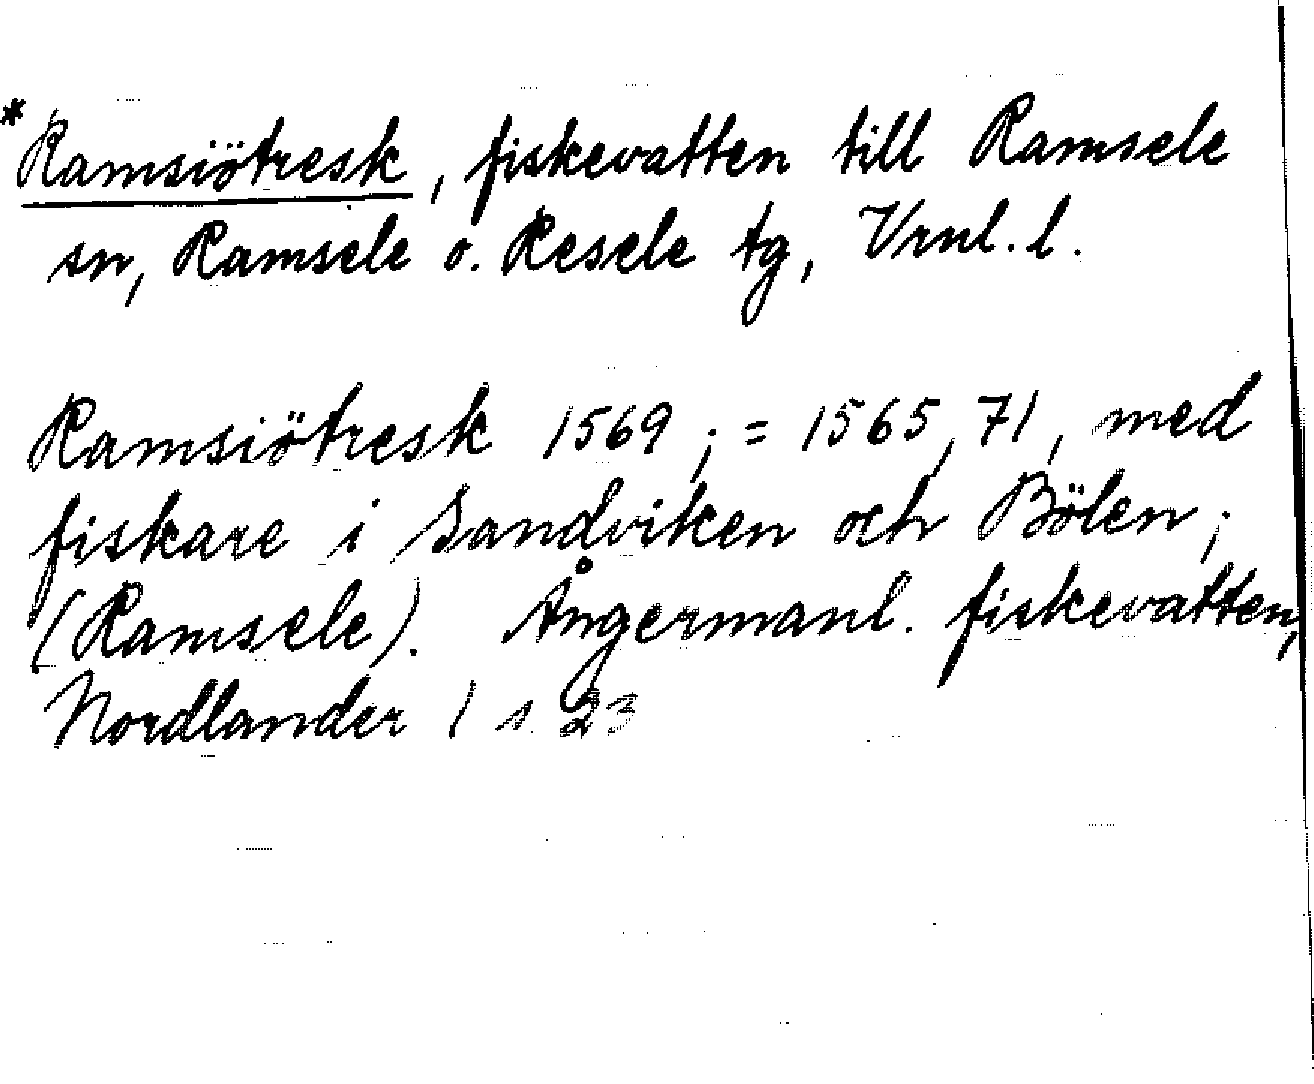 *Ramsiötresk, fiskevatten till Ramsele
sn, Ramsele o. Resele tg, Vrnl. l.
Ramsiötresk 1569 ; = 1565, 71, med
fiskare i Sandviken och Bölen ;
(Ramsele). Ångermanl. fiskevatten,
Nordlander 1 s. 23